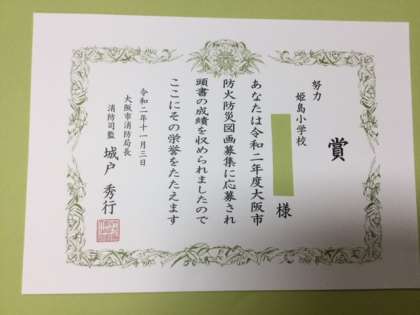 努力
賞
姫島小学校
様
あなたは令和二年度大阪市
防火防災図画募集に応募され
頭書の成績を収められましたので
ここにその栄誉をたたえます
令和二年十一月三日
大阪市消防局長
消防司監 城戸 秀行